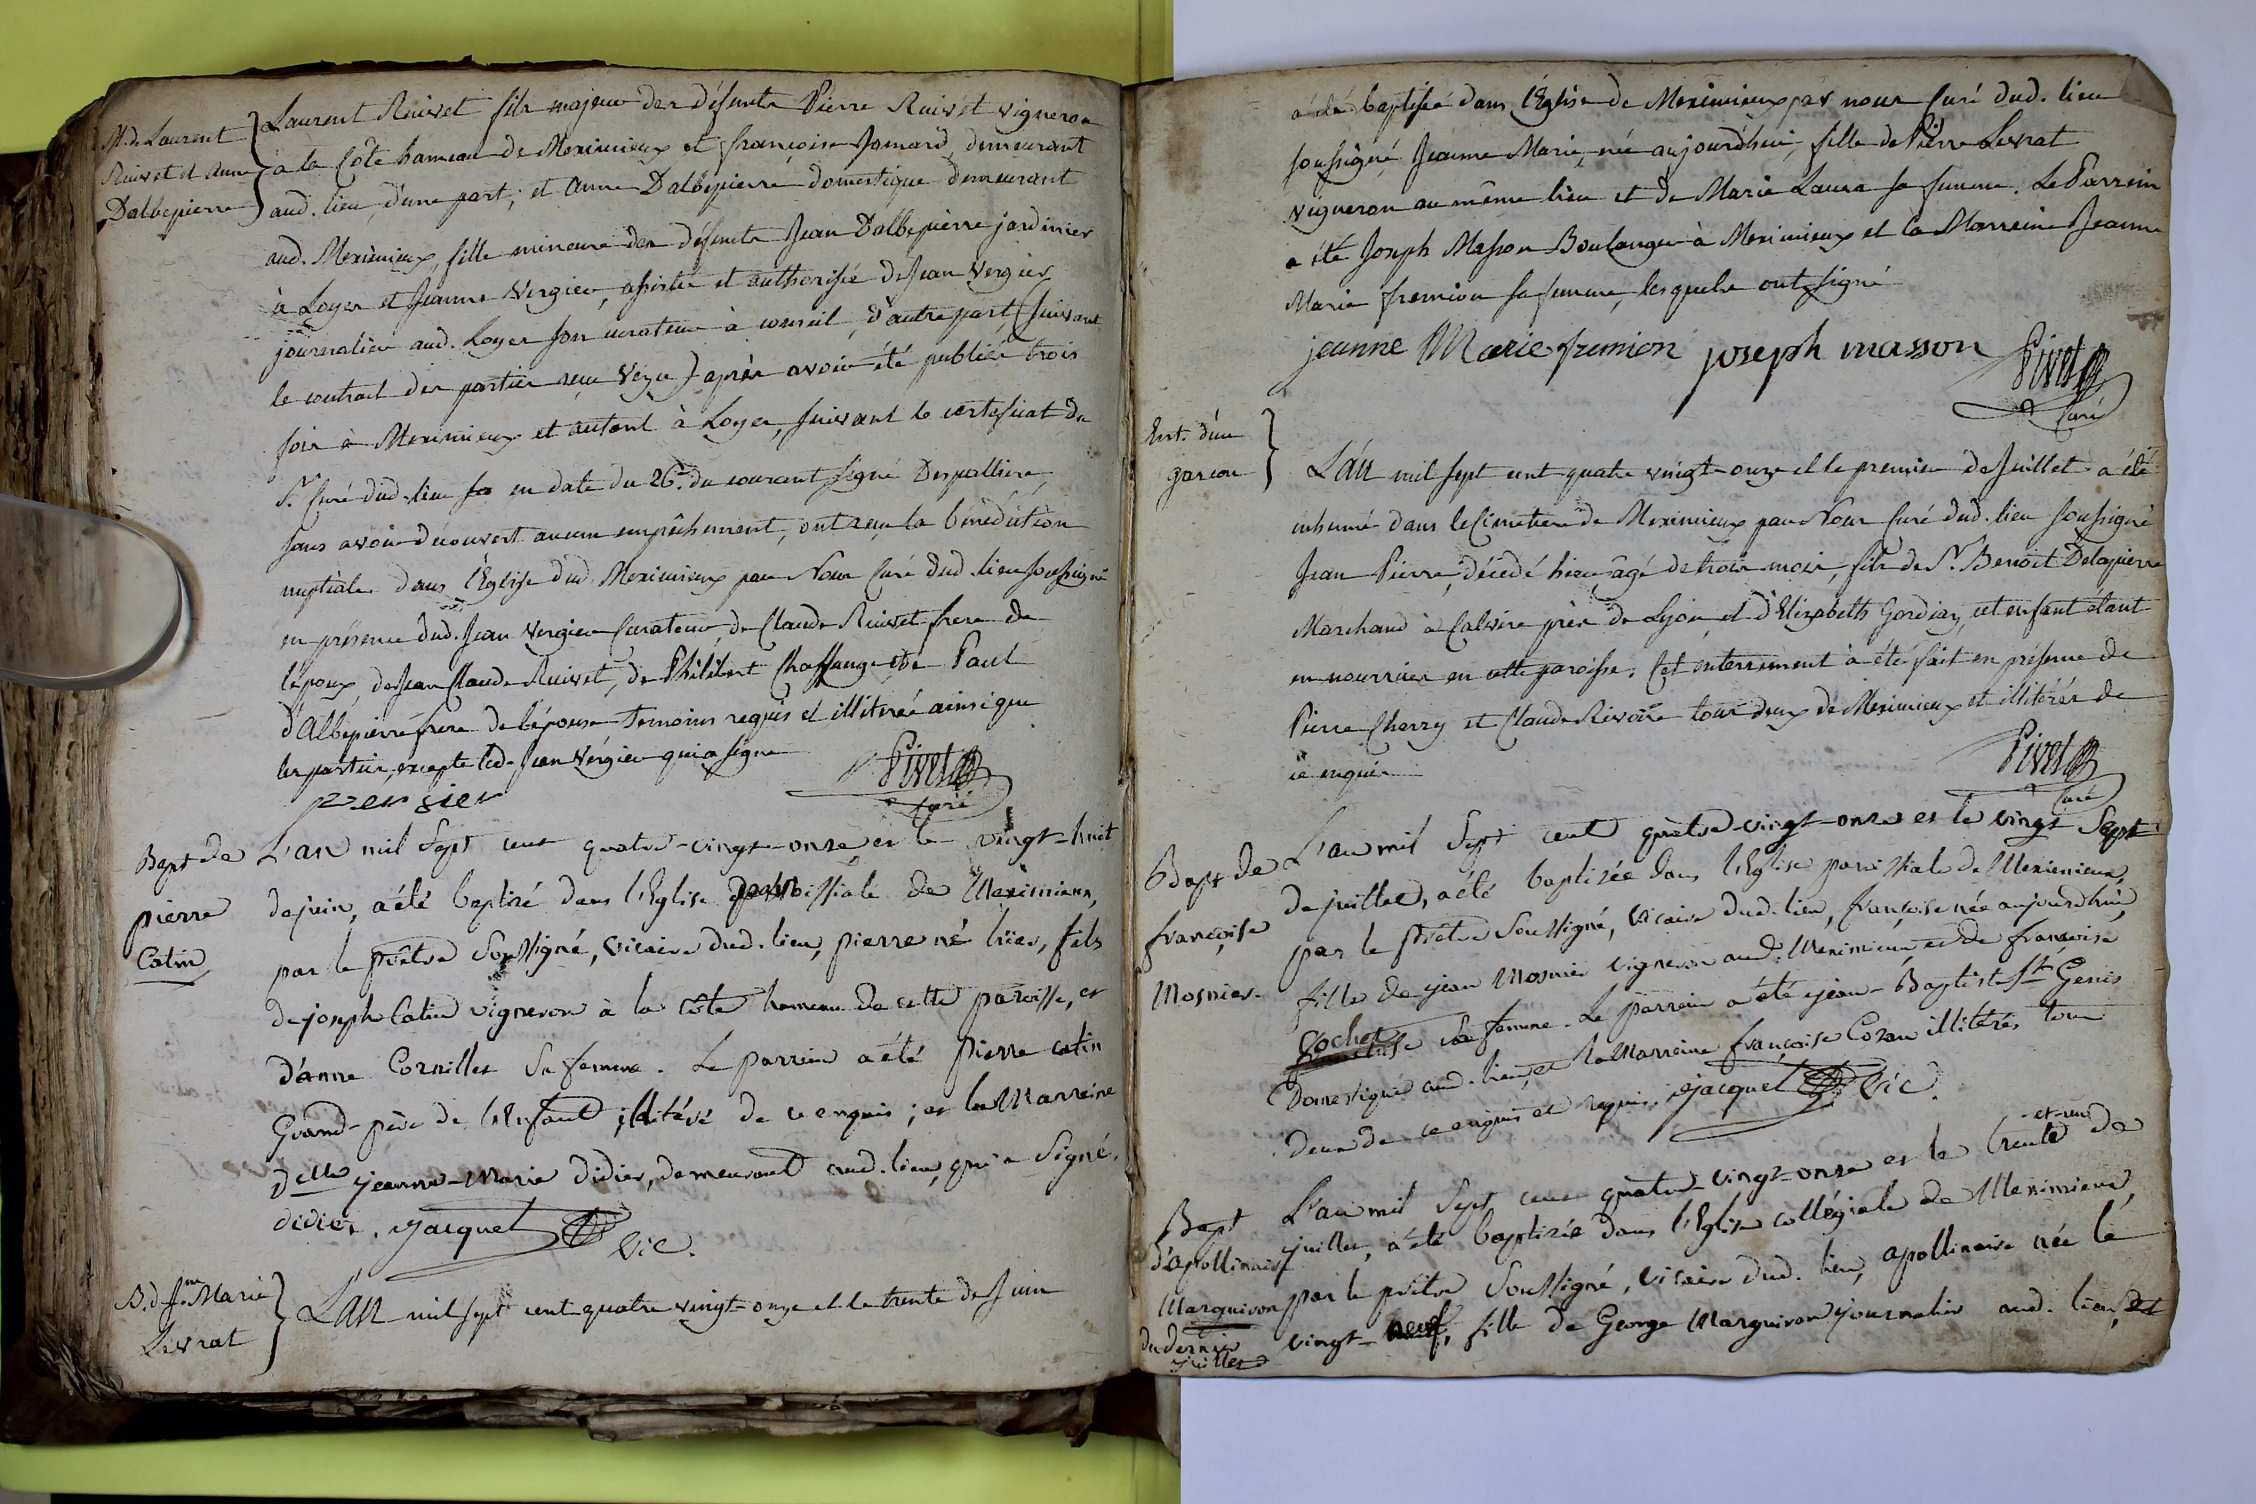 M. de Laurent
Ruivet et Anne
Dalbepierre
Laurent Ruivet fils majeur des défunts Pierre Ruivet vigneron
à la Côte hameau de Meximieux et françoise Jomard, demeurant
aud. lieu, d'une part; et Anne Dalbepierre domestique demeurant
aud. Meximieux, fille mineure des défunts Jean Dalbepierre jardinier
à Loyes et Jeanne Vergier, assistée et authorisée de Jean Vergier
journalier aud. Loyes son curateur à conseil, d'autre part, (suivant
le contrat des parties reçu ) après avoir été publiés trois
fois à Meximieux et autant à Loyes, suivant le certificat du
Sr. Curé dud. lieu en date du 26e. du courant signé Despallière,
sans avoir découvert aucun empêchement, ont reçu la bénédiction
nuptiale dans l'Église dud. Meximieux par Nous Curé dud. lieu soussigné
en présence dud. Jean Vergier Curateur, de Claude Ruivet frere de
l'époux, de Jean Claude Ruivet, de Philibert Chaffange et de Paul
d'Albepierre frere de l'épouse temoins requis et illitérés ainsi que
les parties, excepté led. Jean Vergier qui a signé
Vergier Pivet
Curé
Bapt de
pierre
Catin
L'an mil Sept cent quatre-vingt-onze, et le vingt-huit
de juin, a été baptisé dans l'Eglise paroissiale de Meximieux,
par le prêtre Soussigné, vicaire dud. lieu, pierre né hier, fils
de joseph Catin vigneron à la côte hameau de cette paroisse, et
d'anne Cornillet Sa femme. Le parrein a été pierre catin
Grand-père de l'Enfant, illitéré de ce enquis; et la Marreine
Delle jeanne-Marie didier, demeurant aud. lieu, qui a Signé.
didier. jacquet
vic.
B. d Jne Marie
Levrat
L'an mil sept cent quatre vingt-onze et le trente de Juin
a été baptisée dans l'Église de Meximieux par nous Curé dud. lieu
soussigné, Jeanne Marie, née aujourd'hui, fille de Pierre Levrat
vigneron au même lieu et de Marie Laura sa femme. Le Parrein
a été Joseph Masson Boulanger à Meximieux et la Marreine Jeanne
Marie fremion sa femme, lesquels ont signé
jeanne Marie fremion joseph masson Pivet
Curé
Ent. d'un
garçon
L'an mil sept cent quatre vingt-onze et le premier de Juillet a été
inhumé dans le Cimetiere de Meximieux par Nous Curé dud. lieu soussigné
Jean Pierre, décédé hier âgé de trois mois, fils de Sr. Benoit Delapierre
Marchand à Calvire près de Lyon et d'Elizabeth Gordiay, cet enfant étant
en nourrice en cette paroisse. Cet enterrement a été fait en présence de
Pierre Cherry et Claude Rivoire tous deux de Meximieux et illitérés de
ce enquis
Pivet
Curé
Bapt de
françoise
Mosnier
L'an mil Sept cent quatre-vingt-onze et le vingt Sept
de juillet, a été baptisée dans l'Eglise paroissiale de Meximieux,
par le prêtre Soussigné, vicaire dud. lieu, françoise née aujourdhui,
fille de jean Mosnier vigneron aud. Meximieux et de françoise
Cochet sa femme. Le parrein a été jean-Baptiste St Genis
Domestique aud. lieu, et la Marreine françoise Cozan illitérés tous
deux de ce enquis et requis. jacquet vic.
Bapt
d'apollinaire
Marguiron
du dernier
juillet
-et-un
L'an mil Sept cent quatre-vingt-onze et le trente de
juillet, a été baptisée dans l'Eglise collégiale de Meximieux,
par le prêtre Soussigné, vicaire dud. lieu, apollinaire née le
vingt-neuf, fille de George Marguiron journalier aud. lieu, et